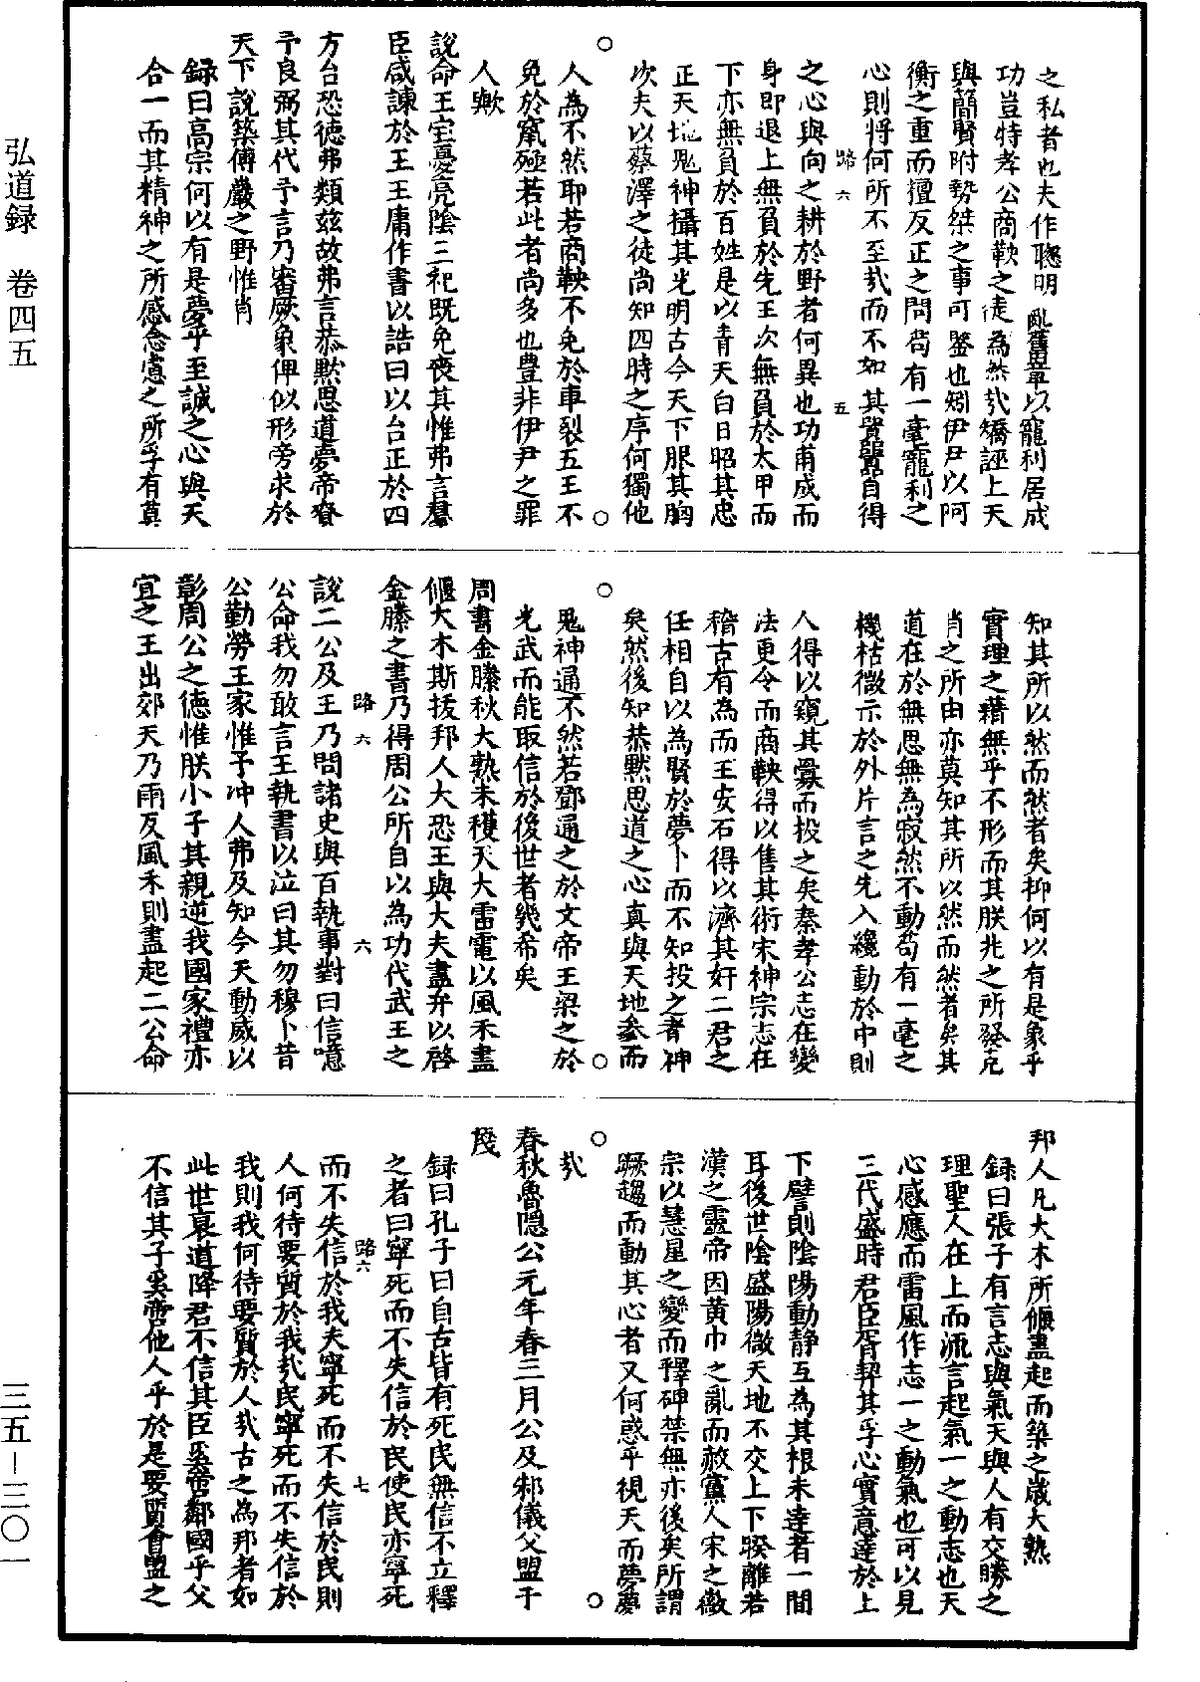 弘道録　卷四五
三五―三〇一
之私者也夫作聰明亂舊章以寵利居成
功豈特孝公商鞅之徒為然㢤矯誣上天
與簡賢附勢桀之事可鑒也矧伊尹以阿
衡之重而擅反正之問茍有一毫寵利之
心則將何所不至㢤而不如其賢囂囂自得
路六　五
之心與向之耕於野者何異也功甫成而
身即退上無負於先王次無負於太甲而
下亦無負於百姓是以青天白日昭其忠
正天地鬼神攝其光明古今天下服其胸
次夫以蔡澤之徒尚知四時之序何獨他
人為不然耶若商鞅不免於車裂五王不
免於竄殛若此者尚多也豊非伊尹之罪
人歟
說命王宅憂亮陰三祀既免喪其惟弗言羣
臣咸諫於王王庸作書以誥曰以台正於四
方台恐德弗類兹故弗言恭黙思道夢帝賚
予良弼其代予言乃審厥象俾以形旁求於
天下說築傅巖之野惟肖
録曰高宗何以有是夢乎至誠之心與天
合一而其精神之所感念慮之所孚有莫
知其所以然而然者矣抑何以有是象乎
實理之藉無乎不形而其朕兆之所發克
肖之所由亦莫知其所以然而然者矣其
道在於無思無為寂然不動茍有一毫之
機枯微示於外片言之先入纔動於中則
人得以窺其釁而投之矣秦孝公志在變
法更令而商鞅得以售其術宋神宗志在
稽古有為而王安石得以濟其奸二君之
任相自以為賢於夢卜而不知投之者神
矣然後知恭黙思道之心真與天地參而
鬼神通不然若鄧通之於文帝王梁之於
光武而能取信於後世者幾希矣
周書金縢秋大熟未穫天大雷電以風禾盡
偃大木斯拔邦人大恐王與大夫盡弁以啓
金縢之書乃得周公所自以為功代武王之
路六　六
說二公及王乃問諸史與百執事對曰信噫
公命我勿敢言王執書以泣曰其勿穆卜昔
公勤勞王家惟予冲人弗及知今天動威以
彰周公之德惟朕小子其親逆我國家禮亦
宜之王出郊天乃雨反風禾則盡起二公命
邦人凡大木所偃盡起而築之歲大熟
録曰張子有言志與氣天與人有交勝之
理聖人在上而流言起氣一之動志也天
心感應而雷風作志一之動氣也可以見
三代盛時君臣胥契其孚心實意達於上
下譬則陰陽動靜互為其根未達者一間
耳後世陰盛陽微天地不交上下暌離若
漢之靈帝因黄巾之亂而赦黨人宋之徽
宗以慧星之變而釋碑禁無亦後矣所謂
蹶趨而動其心者又何惑乎視天而夢夢
㢤
春秋魯隱公元年春三月公及邾儀父盟于
蔑
録曰孔子曰自古皆有死民無信不立釋
之者曰寧死而不失信於民使民亦寧死
路六　七
而不失信於我夫寧死而不失信於民則
人何待要質於我㢤民寧死而不失信於
我則我何待要質於人㢤古之為邦者如
此世衰道降君不信其臣奚啻鄰國乎父
不信其子奚啻他人乎於是要質會盟之